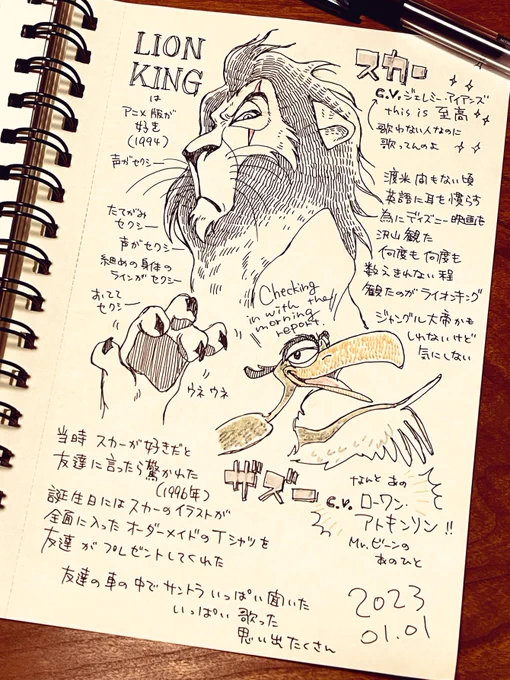 LION
KING
は
アニメ版が
好き
(1994)
声がセクシー
たてがみ
セクシー
声がセクシー
細めの身体の
ラインがセクシー
おてて
セクシー
ウネウネ
スカー
C.V. ジェレミー・アイアンズ
this is 至高
歌わない人なのに
歌ってんのよ
渡米間もない頃
英語に耳を慣らす
為にディズニー映画を
沢山観た
何度も何度も
数えきれない程
観たのがライオンキング
ジャングル大帝かも
しれないけど
気にしない
Checking
in with the
morning
report.
ザズー
C.V. なんと あの
ローワン・
アトキンソン!!
Mr.ビーンの
あのひと
当時 スカーが好きだと
友達に言ったら驚かれた
(1996年)
誕生日にはスカーのイラストが
全面に入ったオーダーメイドのTシャツを
友達がプレゼントしてくれた
友達の車の中でサントラいっぱい聞いた
いっぱい歌った
思い出たくさん
2023
01.01